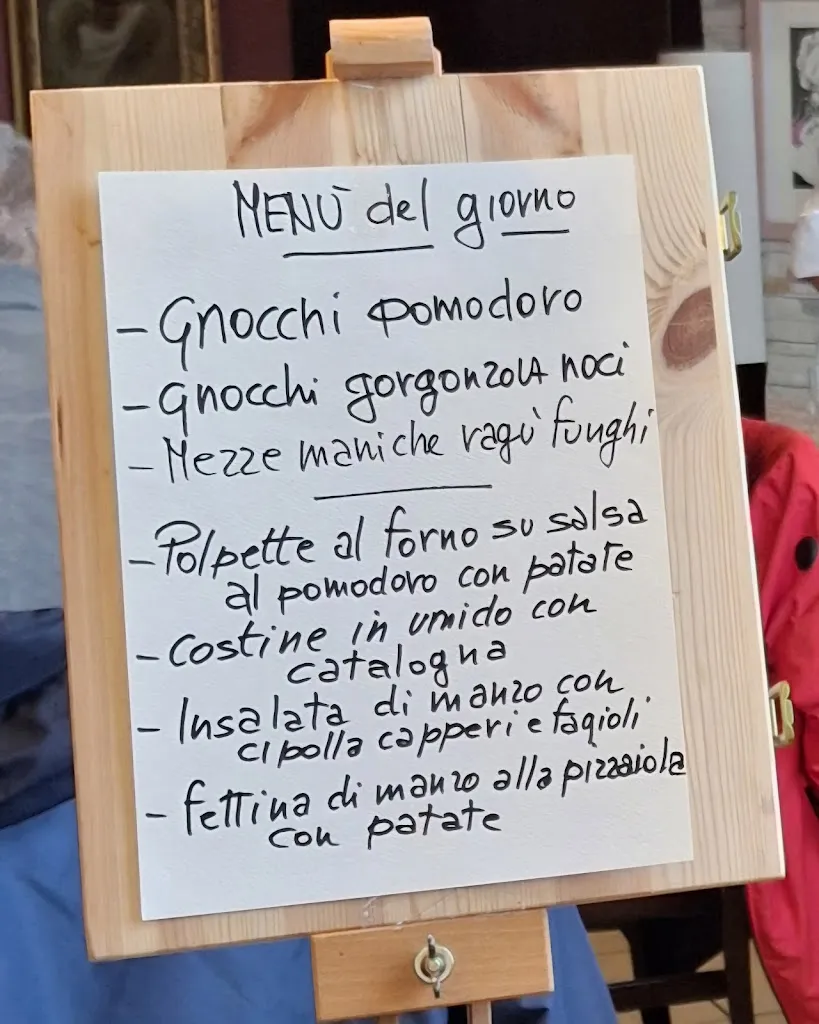 MENÙ del giorno
- Gnocchi pomodoro
- Gnocchi gorgonzola noci
- Mezze maniche ragù funghi
- Polpette al forno su salsa
al pomodoro con patate
- Costine in umido con
catalogna
- Insalata di manzo con
cipolla capperi e fagioli
- Fettina di manzo alla pizzaiola
con patate